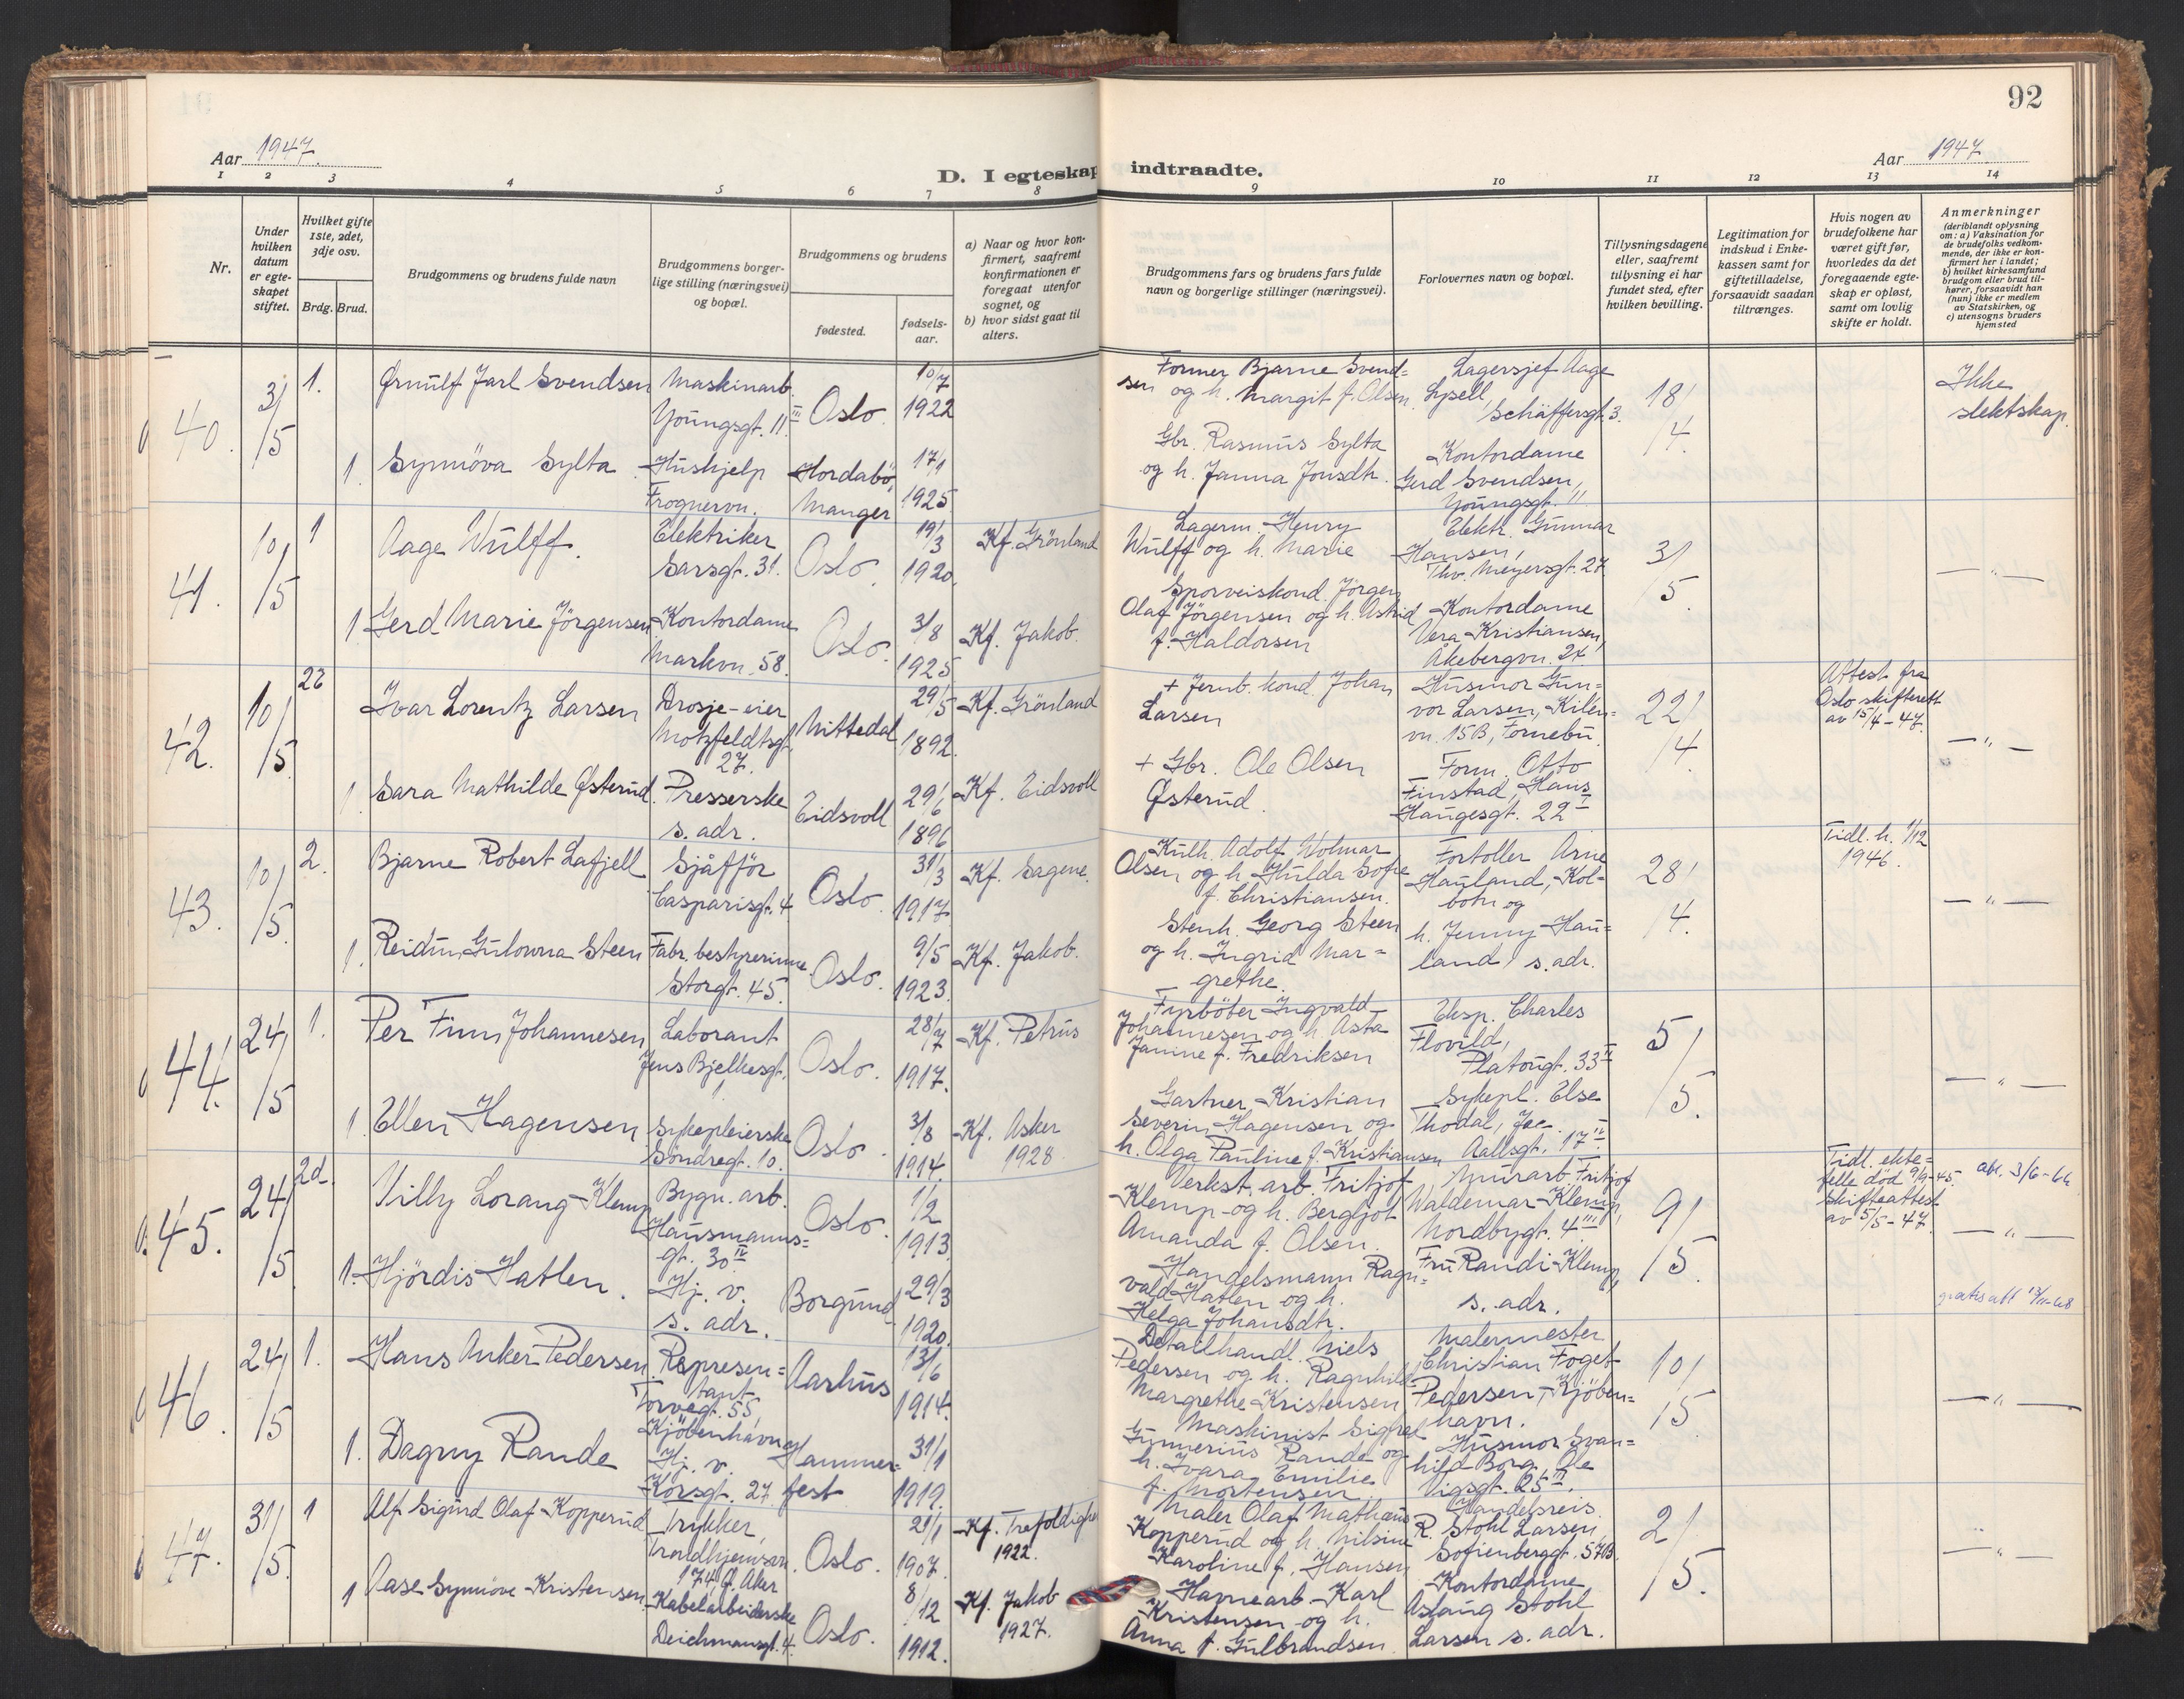 92
Aar 1947.
Aar 1947.
D. I egteskap indtraadte.
1 2 3 4 5 6 7 8 9 10 11 12 13 14
Nr.
Under hvilken datum er egteskapet stiftet.
Hvilket gifte 1ste, 2det, 3dje osv.
Brdg. Brud.
Brudgommens og brudens fulde navn
Brudgommens borgerlige stilling (næringsvei) og bopæl.
Brudgommens og brudens
fødested.
fødselsaar.
a) Naar og hvor konfirmert, saafremt konfirmationen er foregaat utenfor sognet, og
b) hvor sidst gaat til alters.
Brudgommens fars og brudens fars fulde navn og borgerlige stillinger (næringsvei).
Forlovernes navn og bopæl.
Tillysningsdagene eller, saafremt tillysning ei har fundet sted, efter hvilken bevilling.
Legitimation for indskud i Enkekassen samt for giftetilladelse, forsaavidt saadan tiltrænges.
Hvis nogen av brudefolkene har været gift før, hvorledes da det foregaaende egteskap er opløst, samt om lovlig skifte er holdt.
Anmerkninger (deriblandt oplysning om: a) Vaksination for de brudefolks vedkommende, der ikke er konfirmert her i landet; b) hvilket kirkesamfund brudgom eller brud tilhører, forsaavidt han (hun) ikke er medlem av Statskirken, og c) utensogns bruders hjemsted
40. 3/5 1. Ørnulf Jarl Svendsen
Maskinarb.
Youngsgt. 11 III
Oslo. 10/7 1922
Former Bjarne Svend=
sen og h. Margit f. Olsen
Lagersjef Aage
Lysell,
Schäffersgt. 3.
18/4.
Ikke
slektskap.
1 Synnöva Sylta
Hushjelp
Frognervn.
Hordabö,
Manger
17/1 1925
Gbr. Rasmus Sylta
og h. Janna Jonsdtr.
Kontordame
Gerd Svendsen,
Youngsgt. 11
41. 10/5 1 Aage Wulff.
Elektriker
Sarsgt. 31.
Oslo. 19/3 1920.
Kf. Grönland
Lagerm. Henry
Wulff og h. Marie
Elektr. Gunnar
Hansen,
Thv. Meyersgt. 27
3/5.
— " —
1 Gerd Marie Jörgensen
Kontordame
Markvn. 58.
Oslo. 3/8 1925
Kf. Jakob.
Sporveiskond. Jörgen
Olaf Jörgensen og h. Astrid
f. Haldorsen
Kontordame
Vera Kristiansen,
Åkebergvn. 24
42. 10/5 Ivar Lorentz Larsen
Drosje-eier
Motzfeldtsgt.
27.
Nittedal 29/5 1892.
Kf. Grönland
+ Jernb. kond. Johan
Larsen
Husmor Gun=
vor Larsen, Kilen=
vn. 15B, Fornebu.
22/4
Attest fra
Oslo skifterett
av 15/4-47.
— " —
1 Sara Mathilde Østerud.
Presserske
s. adr.
Eidsvoll 29/6 1896
Kf. Eidsvoll
+ Gbr. Ole Olsen
Østerud.
Form. Otto
Finstad, Hans
Haugesgt. 22 I
43. 10/5. 2. Bjarne Robert Lafjell
Sjåfför
Casparisgt. 4
Oslo. 31/3 1917.
Kf. Sagene.
Kulh. Adolf Wolmar
Olsen og h. Hulda Sofie
f. Christiansen.
Fortoller Arne
Hauland, Kol=
botn og
28/4.
Tidl. h. 1/12
1946.
— " —
1. Reidun Gulowna Steen
Fabr. bestyrerinne
Storgt. 45.
Oslo. 9/5 1923.
Kf. Jakob.
Stenh. Georg Steen
og h. Ingrid Mar=
grethe.
h. Jenny Hau=
land, s. adr.
44. 24/5 1. Per Finn Johannesen
Laborant
Jens Bjelkesgt.
1
Oslo. 28/7 1917.
Kf. Petrus
Fyrböter Ingvald
Johannesen og h. Asta
Janine f. Fredriksen
Eksp. Charles
Flovild,
Platougt. 33 II
5/5.
— " —
1. Ellen Hagensen
Sykepleierske
Söndregt. 10.
Oslo. 3/8 1914.
Kf. Asker
1928.
Gartner Kristian
Severin Hagensen og
h. Olga Pauline f. Kristiansen
Sykepl. Else
Thodal,
Aallsgt. 17 II
45. 24/5 2d. Villy Lorang Klemp
Bygn. arb.
Hausmanns=
gt. 30 IV
Oslo. 1/2 1913.
Verkst. arb. Fritjof
Klemp og h. Bergljot
Amanda f. Olsen.
Murarb. Fritjof
Waldemar Klemp,
Nordbygt. 4 III
9/5.
Tidl. ekte=
felle död 9/9-45.
Skifteattest
av 5/5-47.
att. 3/6-66
— " —
1. Hjördis Hatlen.
Hj. v.
s. adr.
Borgund 29/3 1920.
Handelsmann Ragn=
vald Hatlen og h.
Helga Johansdtr.
Fru Randi Klemp,
s. adr.
46. 24/5 1. Hans Anker Pedersen
Represen=
tant
Torvegt. 55,
Kjöbenhavn
Aarhus 13/6 1914.
Detailhandl. Niels
Pedersen og h. Ragnhild
Margrethe Kristensen
Malermester
Christian Foget
Pedersen, Kjöben=
havn.
10/5
— " —
1. Dagny Rande
Hj. v.
Korsgt. 27
Hammer=
fest
31/1 1919.
+ Maskinist Sigfred
Gunnerius Rande og
h. Ivara Emilie
f. Mortensen.
Husmor Svan=
hild Borg, Ole
Vigsgt. 25 III.
47. 31/5. 1 Alf Sigurd Olaf Kopperud
Trykker,
Trondhjemsvn.
174 A, Aker
Oslo. 21/1 1907.
Kf. Trefoldighe
1922.
Maler Olaf Mathæus
Kopperud og h. Nilsine
Karoline f. Hansen
Handelsreis.
R. Stohl Larsen,
Sofienberggt. 57B.
2/5.
— " —
1 Aase Synnöve Kristensen.
Kabelarbeiderske
Deichmansgt. 4.
Oslo. 8/12 1912.
Kf. Jakob
1927.
Havnearb. Karl
Kristensen og h.
Anna f. Gulbrandsen.
Kontordame
Aslaug Stohl
Larsen s. adr.